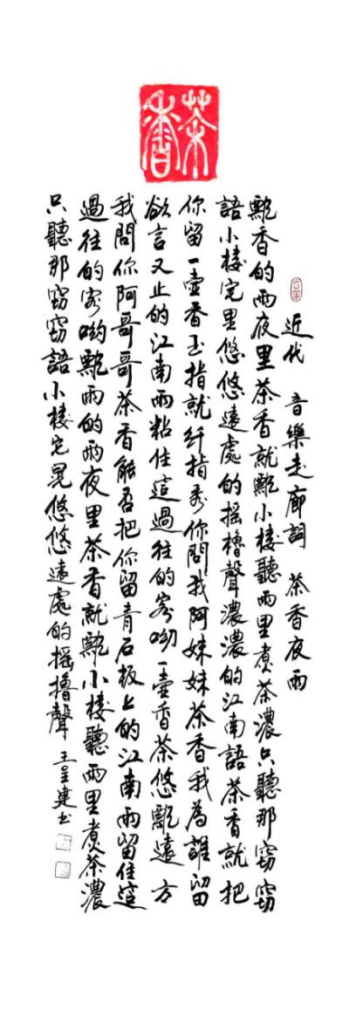 茶香
近代 音樂走廊詞 茶香夜雨
飄香的雨夜里茶香就飄小楼聽雨里煮茶濃只聽那窃窃
語小楼它里悠悠遠處的摇櫓聲濃濃的江南語茶香就把
你留一壶香玉指就纤指秀你問我阿妹妹茶香我為誰留
欲言又止的江南雨粘住這過往的客呦一壶香茶悠飄遠方
我問你阿哥哥茶香能否把你留青石板上的江南雨留住這
過往的客呦飄雨的雨夜里茶香就飄小楼聽雨里煮茶濃
只聽那窃窃語小楼它晃悠悠遠處的摇櫓聲 王呈建书